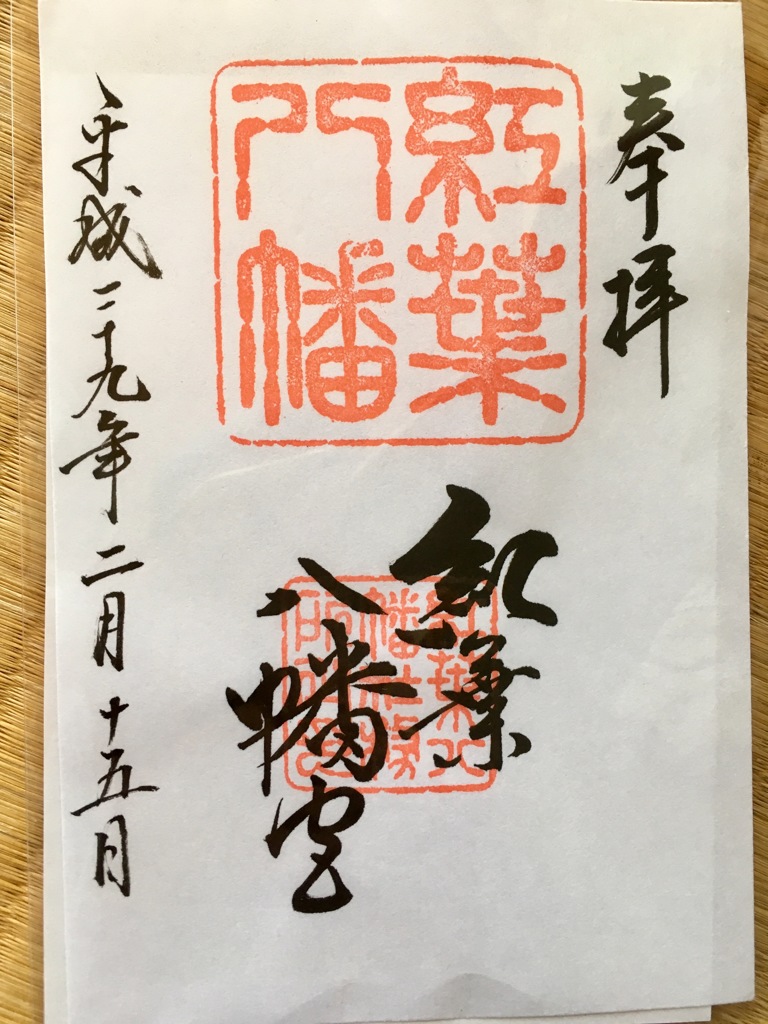 奉拝
紅葉
八幡
紅葉
八幡宮
紅葉八
幡社務
平成二十九年二月十五日